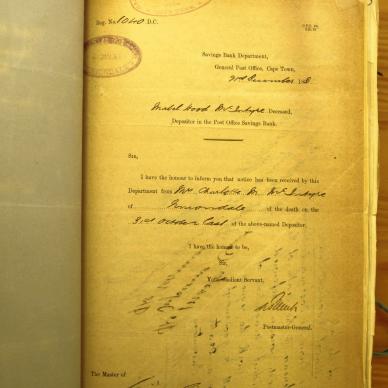 Reg. No. 1060 D.C.
Savings Bank Department,
General Post Office, Cape Town,
December
Mabel Hood McIntyre Deceased,
Depositor in the Post Office Savings Bank.
Sir,
I have the honour to inform you that notice has been received by this
Department from Mrs. Charlotte M. McIntyre
of Uniondale of the death on the
31st October last of the above-named Depositor.
I have the honour to be,
Sir,
Your obedient Servant,
Postmaster-General.
The Master of